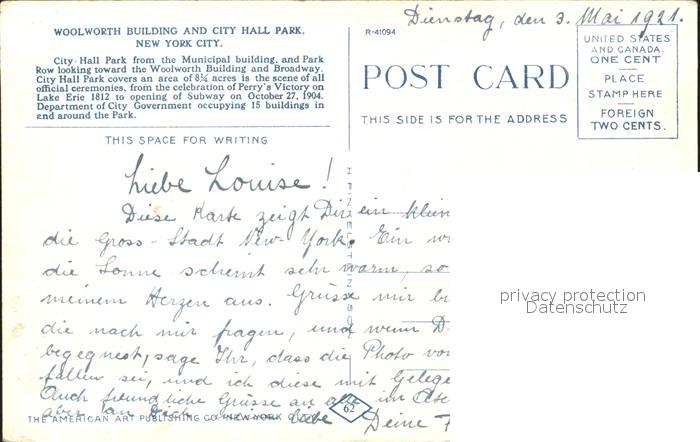 Dienstag, den 3. Mai 1921.
WOOLWORTH BUILDING AND CITY HALL PARK,
NEW YORK CITY.
City Hall Park from the Municipal building, and Park
Row looking toward the Woolworth Building and Broadway.
City Hall Park covers an area of 8¼ acres is the scene of all
official ceremonies, from the celebration of Perry's Victory on
Lake Erie 1812 to opening of Subway on October 27, 1904.
Department of City Government occupying 15 buildings in
and around the Park.
R-41094
POST CARD
THIS SIDE IS FOR THE ADDRESS
UNITED STATES
AND CANADA.
ONE CENT
PLACE
STAMP HERE
FOREIGN
TWO CENTS.
THIS SPACE FOR WRITING
Liebe Louise!
Diese Karte zeigt Dir ein klein
die Gross-Stadt New-York. Ein
die Sonne scheint sehr warm, so
meinem Herzen aus. Grüsse mir
die nach mir fragen, und wenn D
begegnest, sage Ihr, dass die Photo
fallen sei, und ich diese mit Gelege
Auch freundliche Grüsse an alle im
aber an Dich liebe Deine
THE AMERICAN ART PUBLISHING CO. NEW YORK CITY
62
privacy protection
Datenschutz